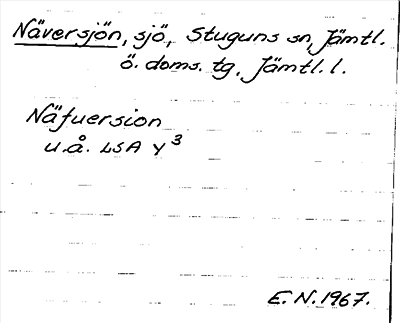 Näversjön, sjö, Stuguns sn, Jämtl.
ö. doms. tg, Jämtl. l.
Näfuersion
u.å. LSA Y³
E. N. 1967.